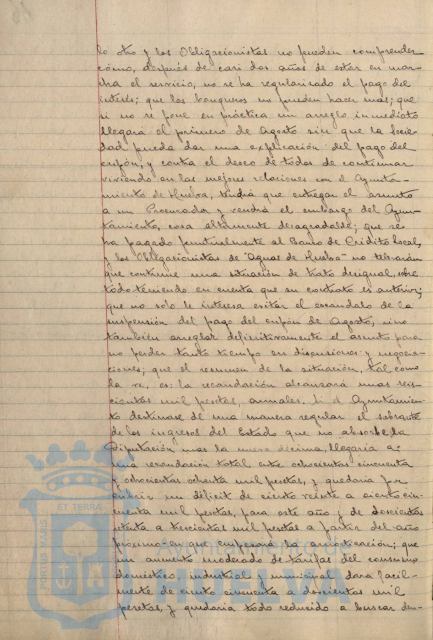 lo otro y los Obligacionistas no pueden comprender
cómo, después de casi dos años de estar en mar-
cha el servicio, no se ha regularizado el pago del
interés; que los banqueros no pueden hacer mas; que
si no se pone en práctica un arreglo inmediato
llegará el primero de Agosto sin que la Socie-
dad pueda dar una explicación del pago del
cupón; y contra el deseo de todos de continuar
viviendo en las mejores relaciones con el Ayunta-
miento de Huelva, tendrá que entregar el asunto
a un Procurador y vendrá el embargo del Ayun-
tamiento, cosa altamente desagradable; que se
ha pagado puntualmente al Banco de Crédito Local,
y los Obligacionistas de "Aguas de Huelva" no tolerarán
que continue una situación de trato desigual, sobre
todo teniendo en cuenta que su contrato es anterior;
que no sólo le interesa evitar el escandalo de la
suspensión del pago del cupón de Agosto, sino
también arreglar definitivamente el asunto para
no perder tanto tiempo en discusiones y negocia-
ciones; que el resumen de la situación, tal como
la ve, es: la recaudación alcanzará unas seis-
cientas mil pesetas, annales. Si el Ayuntamien-
to destinase de una manera regular el sobrante
de los ingresos del Estado que no absorbe la
Diputación mas la nueva décima, llegaría a
una recaudación total entre ochocientas cincuenta
y ochocientas ochenta mil pesetas, y quedaría por
cubrir un déficit de ciento veinte a ciento cin-
cuenta mil pesetas, para este año y de doscientas
setenta a trescientas mil pesetas a partir del año
próximo en que empezará la amortización; que
un aumento moderado de tarifas del consumo
doméstico, industrial y municipal dara facil-
mente de ciento cincuenta a doscientas mil
pesetas, y quedaria todo reducido a buscar
ET TERRA
PORTUS MARIS
Ayuntamiento de
HUELVA